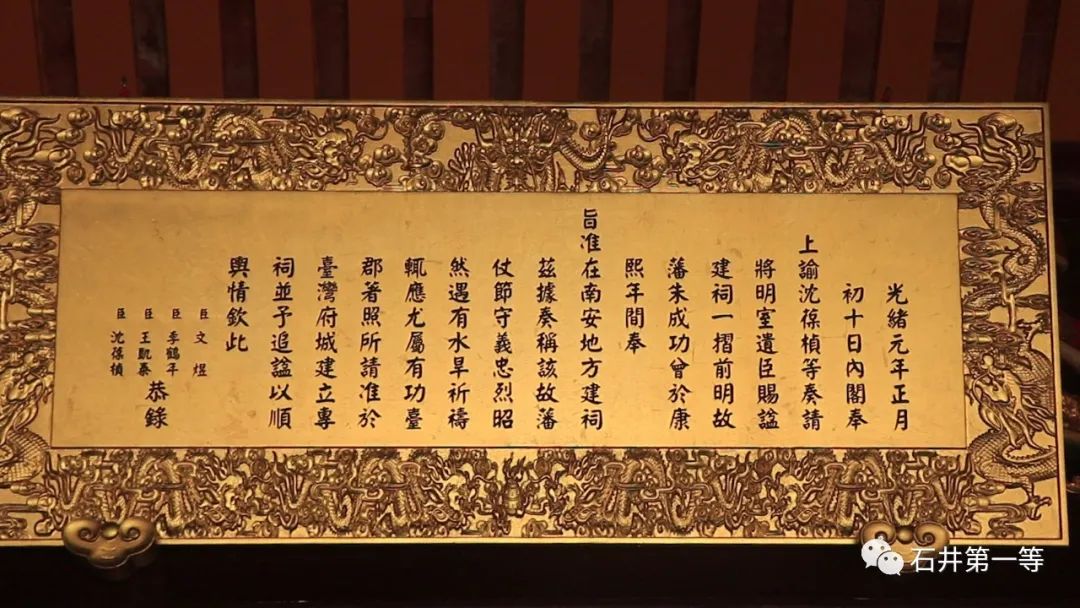 光緒元年正月
初十日內閣奉
上諭沈葆楨等奏請
將明室遺臣賜諡
建祠一摺前明故
藩朱成功曾於康
熙年間奉
旨准在南安地方建祠
茲據奏稱該故藩
仗節守義忠烈昭
然遇有水旱祈禱
輒應尤屬有功臺
郡著照所請准於
臺灣府城建立專
祠並予追諡以順
輿情欽此
臣文煜
臣李鶴年
臣王凱泰
臣沈葆楨
恭錄
石井第一等